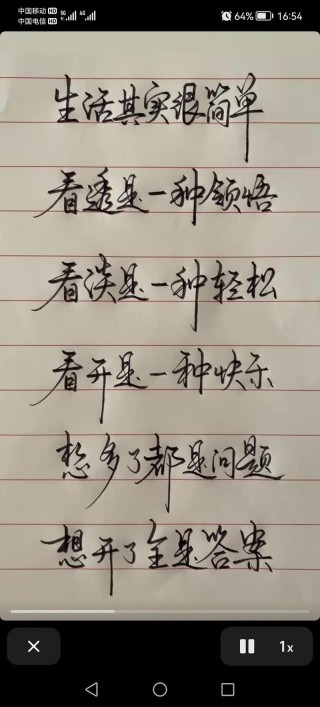 中国移动 HD 5G 4G
中国电信 HD
64% 16:54
生活其实很简单
看透是一种领悟
看淡是一种轻松
看开是一种快乐
愁多了都是问题
想开了全是答案
1x